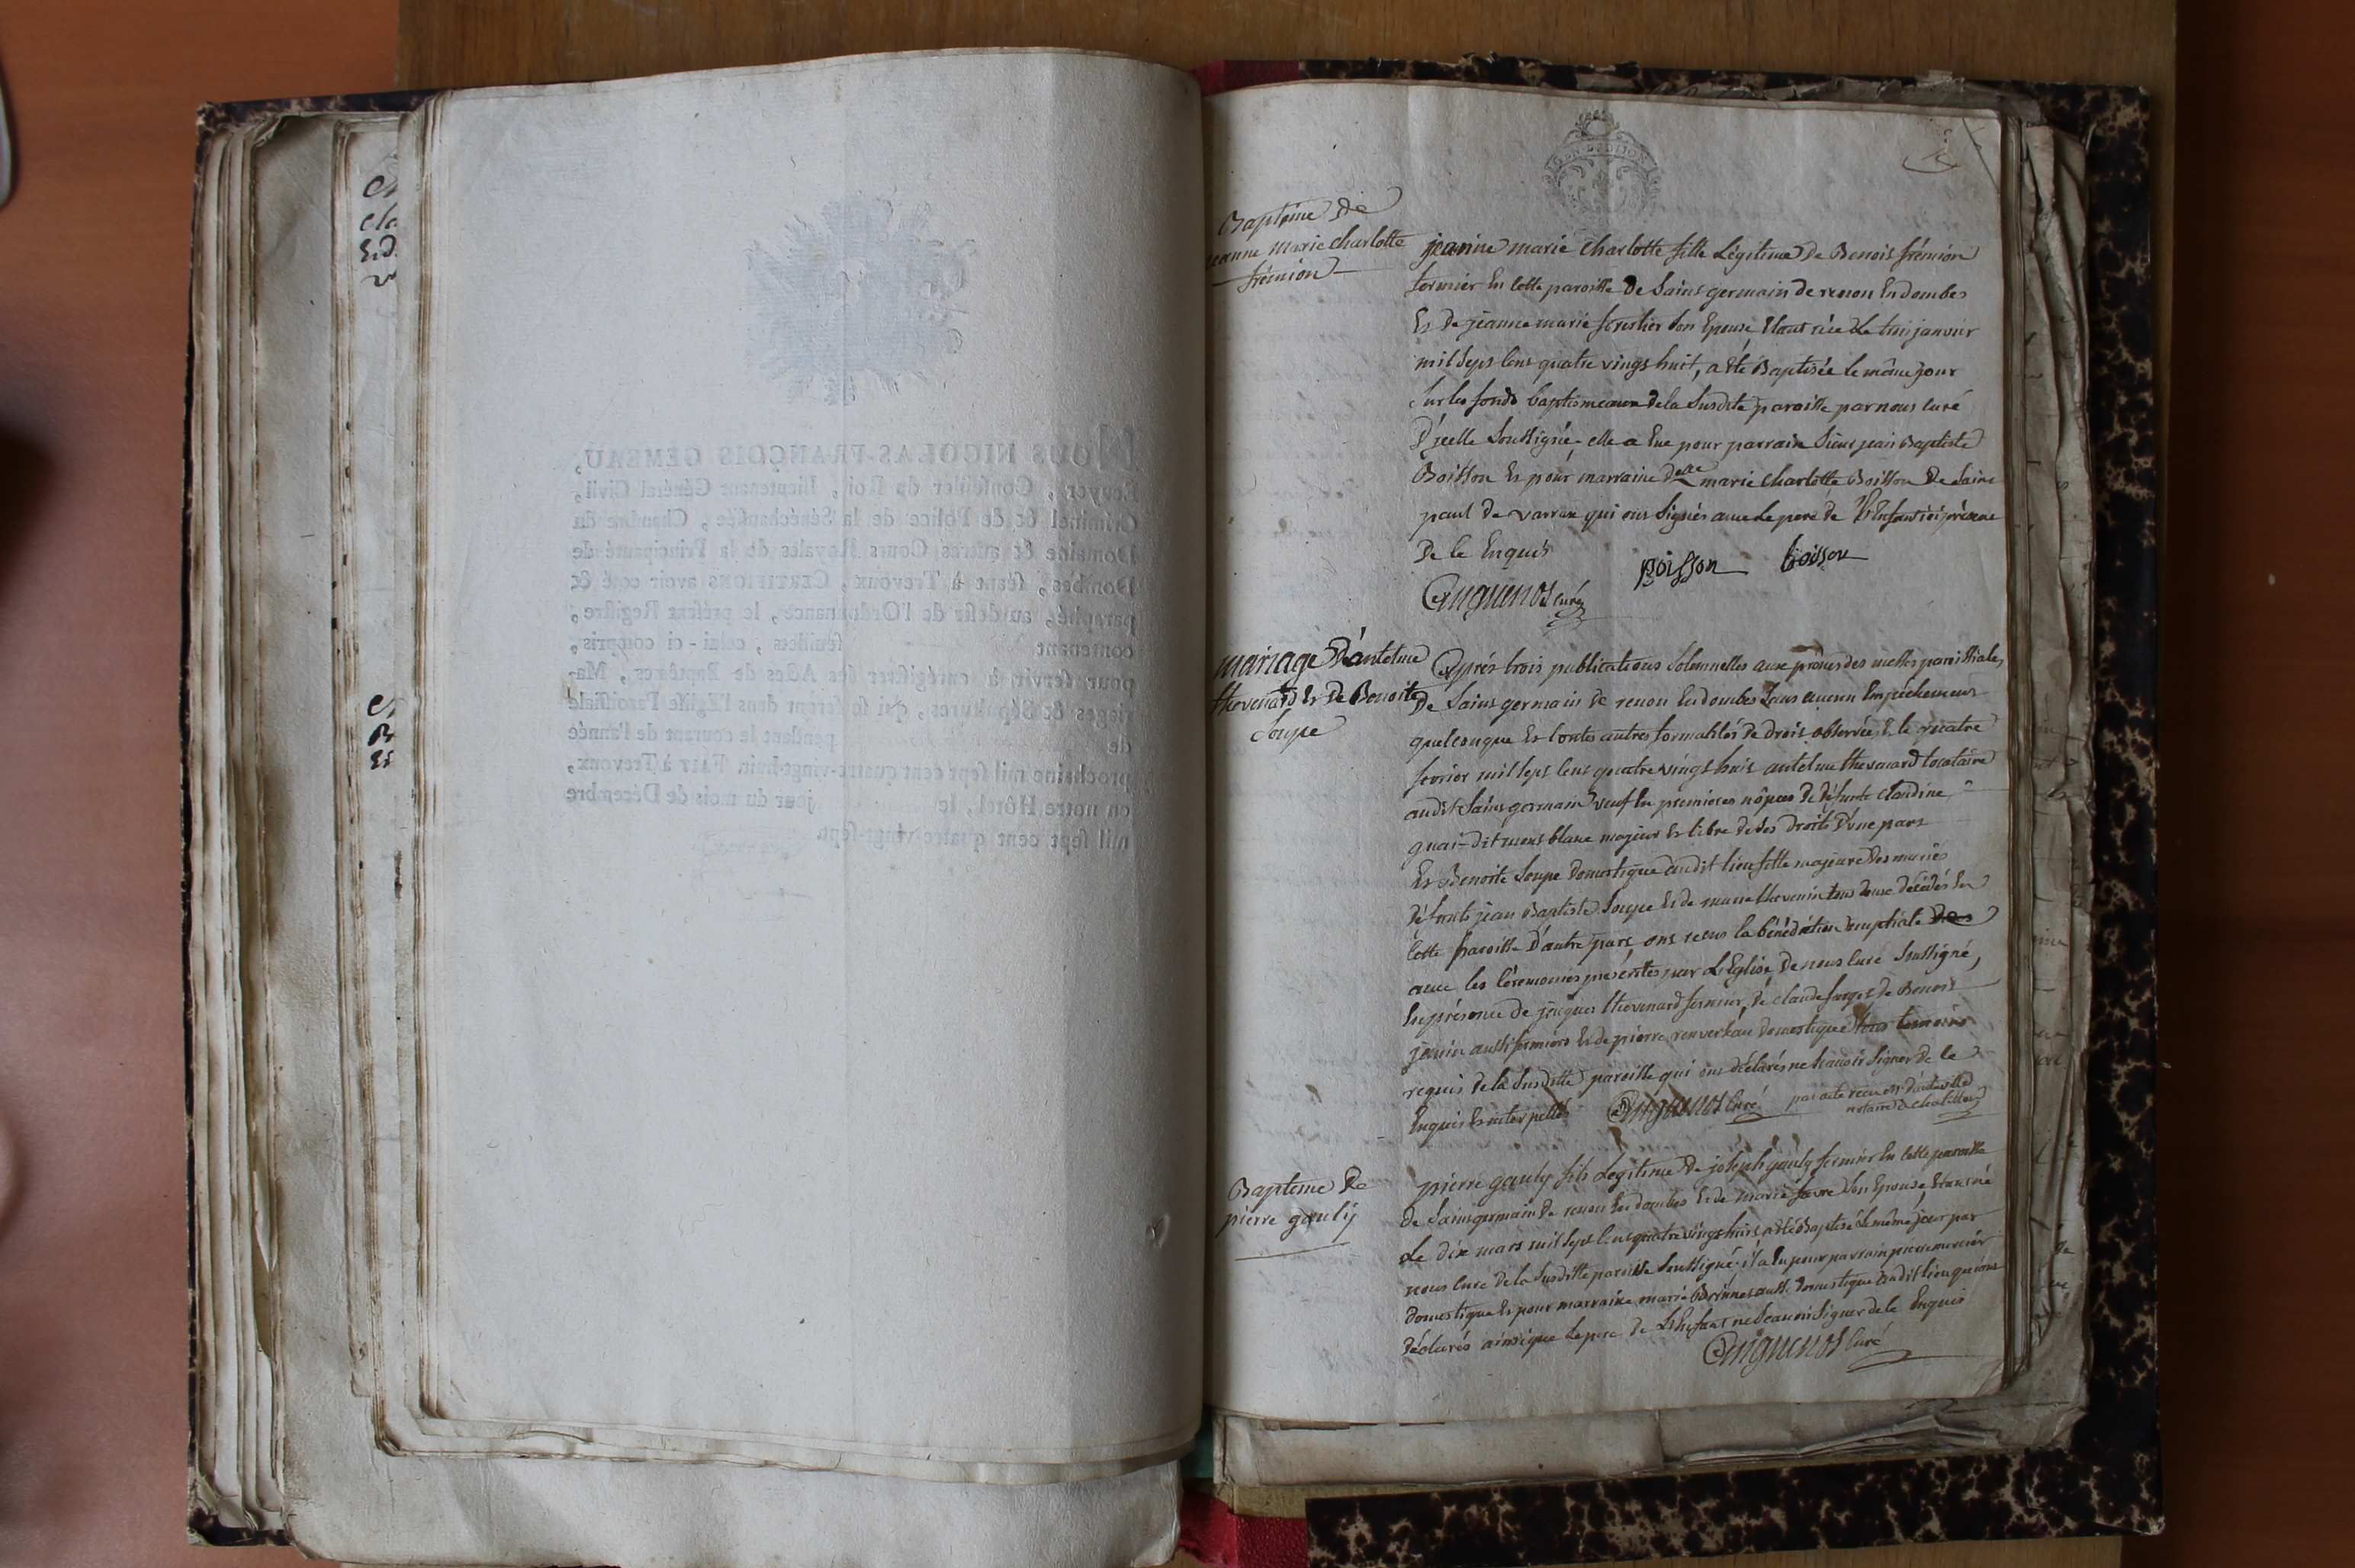 NOUS NICOLAS-FRANÇOIS GEMEAU,
Ecuyer, Conseiller du Roi, Lieutenant Général Civil,
Criminel & de Police de la Sénéchaussée, Chambre du
Domaine & autres Cours Royales de la Principauté de
Dombes, séant à Trevoux, CERTIFIONS avoir coté &
paraphé, au desir de l'Ordonnance, le présent Registre,
contenant feuillets, celui-ci compris,
pour servir à enrégistrer les Actes de Baptêmes, Ma-
riages & Sépultures, qui se feront dans l'Eglise Paroissiale
de pendant le courant de l'année
prochaine mil sept cent quatre-vingt-huit. FAIT à Trevoux,
en notre Hôtel, le jour du mois de Décembre
mil sept cent quatre-vingt-sept.
Baptême de
jeanne marie charlotte
frémion
jeanne marie Charlotte fille Légitime de Benois frémion
fermier En cette paroisse de Saint germain de renon En dombes
Et de jeanne marie forestier son Epouse, Etant née Le trois janvier
mil Sept Cent quatre vingt huit, a été Baptisée le même jour
Sur les fonds baptismeaux de la Susdite paroisse par nous curé
D'jcelle Soussigné, elle a Eue pour parrain Sieur jean Baptiste
Boisson Et pour marraine delle marie charlotte Boisson De Saint
paul de varrax qui ont Signés avec Le pere de L'Enfant ici présent
De ce Enquis
poisson boisson
Cuguenos curé
mariage D'antelme
thevenard Et De Benoite
Soupe
Après trois publications Solemnelles aux prônes des messes paroissiales
De Saint germain de renon En dombes Sans aucun Empêchement
quelconque Et toutes autres formalités de droit observées, le quatre
fevrier mil Sept Cent quatre vingt huit antelme thevenard locataire
audit Saint germain veuf En premieres nôpces De défunte claudine
quai-dit mont blanc majeur Et libre de Ses droits D'une part
Et Benoite Soupe domestique audit lieu fille majeure des mariés
défunts jean Baptiste Soupe Et de marie thevenin tous deux décédés En
Cette paroisse D'autre part, ont recus la bénédiction nuptiale
avec les Céremonies prescrites par L'Eglise, De nous Curé Soussigné,
En présence de jacques thevenard fermier, de claude farget de Benoit
janin aussi fermiers Et de pierre domestique tous temoins
requis de la Susditte paroisse qui ont déclarés ne Scavoir Signer de ce
Enquis Et interpellés Cuguenos Curé par acte recu Me D'auteville
notaire à chatillon
Baptême De
pierre gauly
pierre gauly fils Légitime De joseph gauly fermier En Cette paroisse
de Saint germain De renon En dombes Et de marie favre Son Epouse, Etant né
Le dix mars mil Sept Cent quatre vingt huit a été Baptisé le même jour par
nous Curé de la Susditte paroisse Soussigné. il a Eu pour parrain pierre mercier
domestique Et pour marraine marie aussi domestique audit lieu qui ont
déclarés ainsi que Le pere de L'Enfant ne Scavoir Signer de ce Enquis
Cuguenos Curé